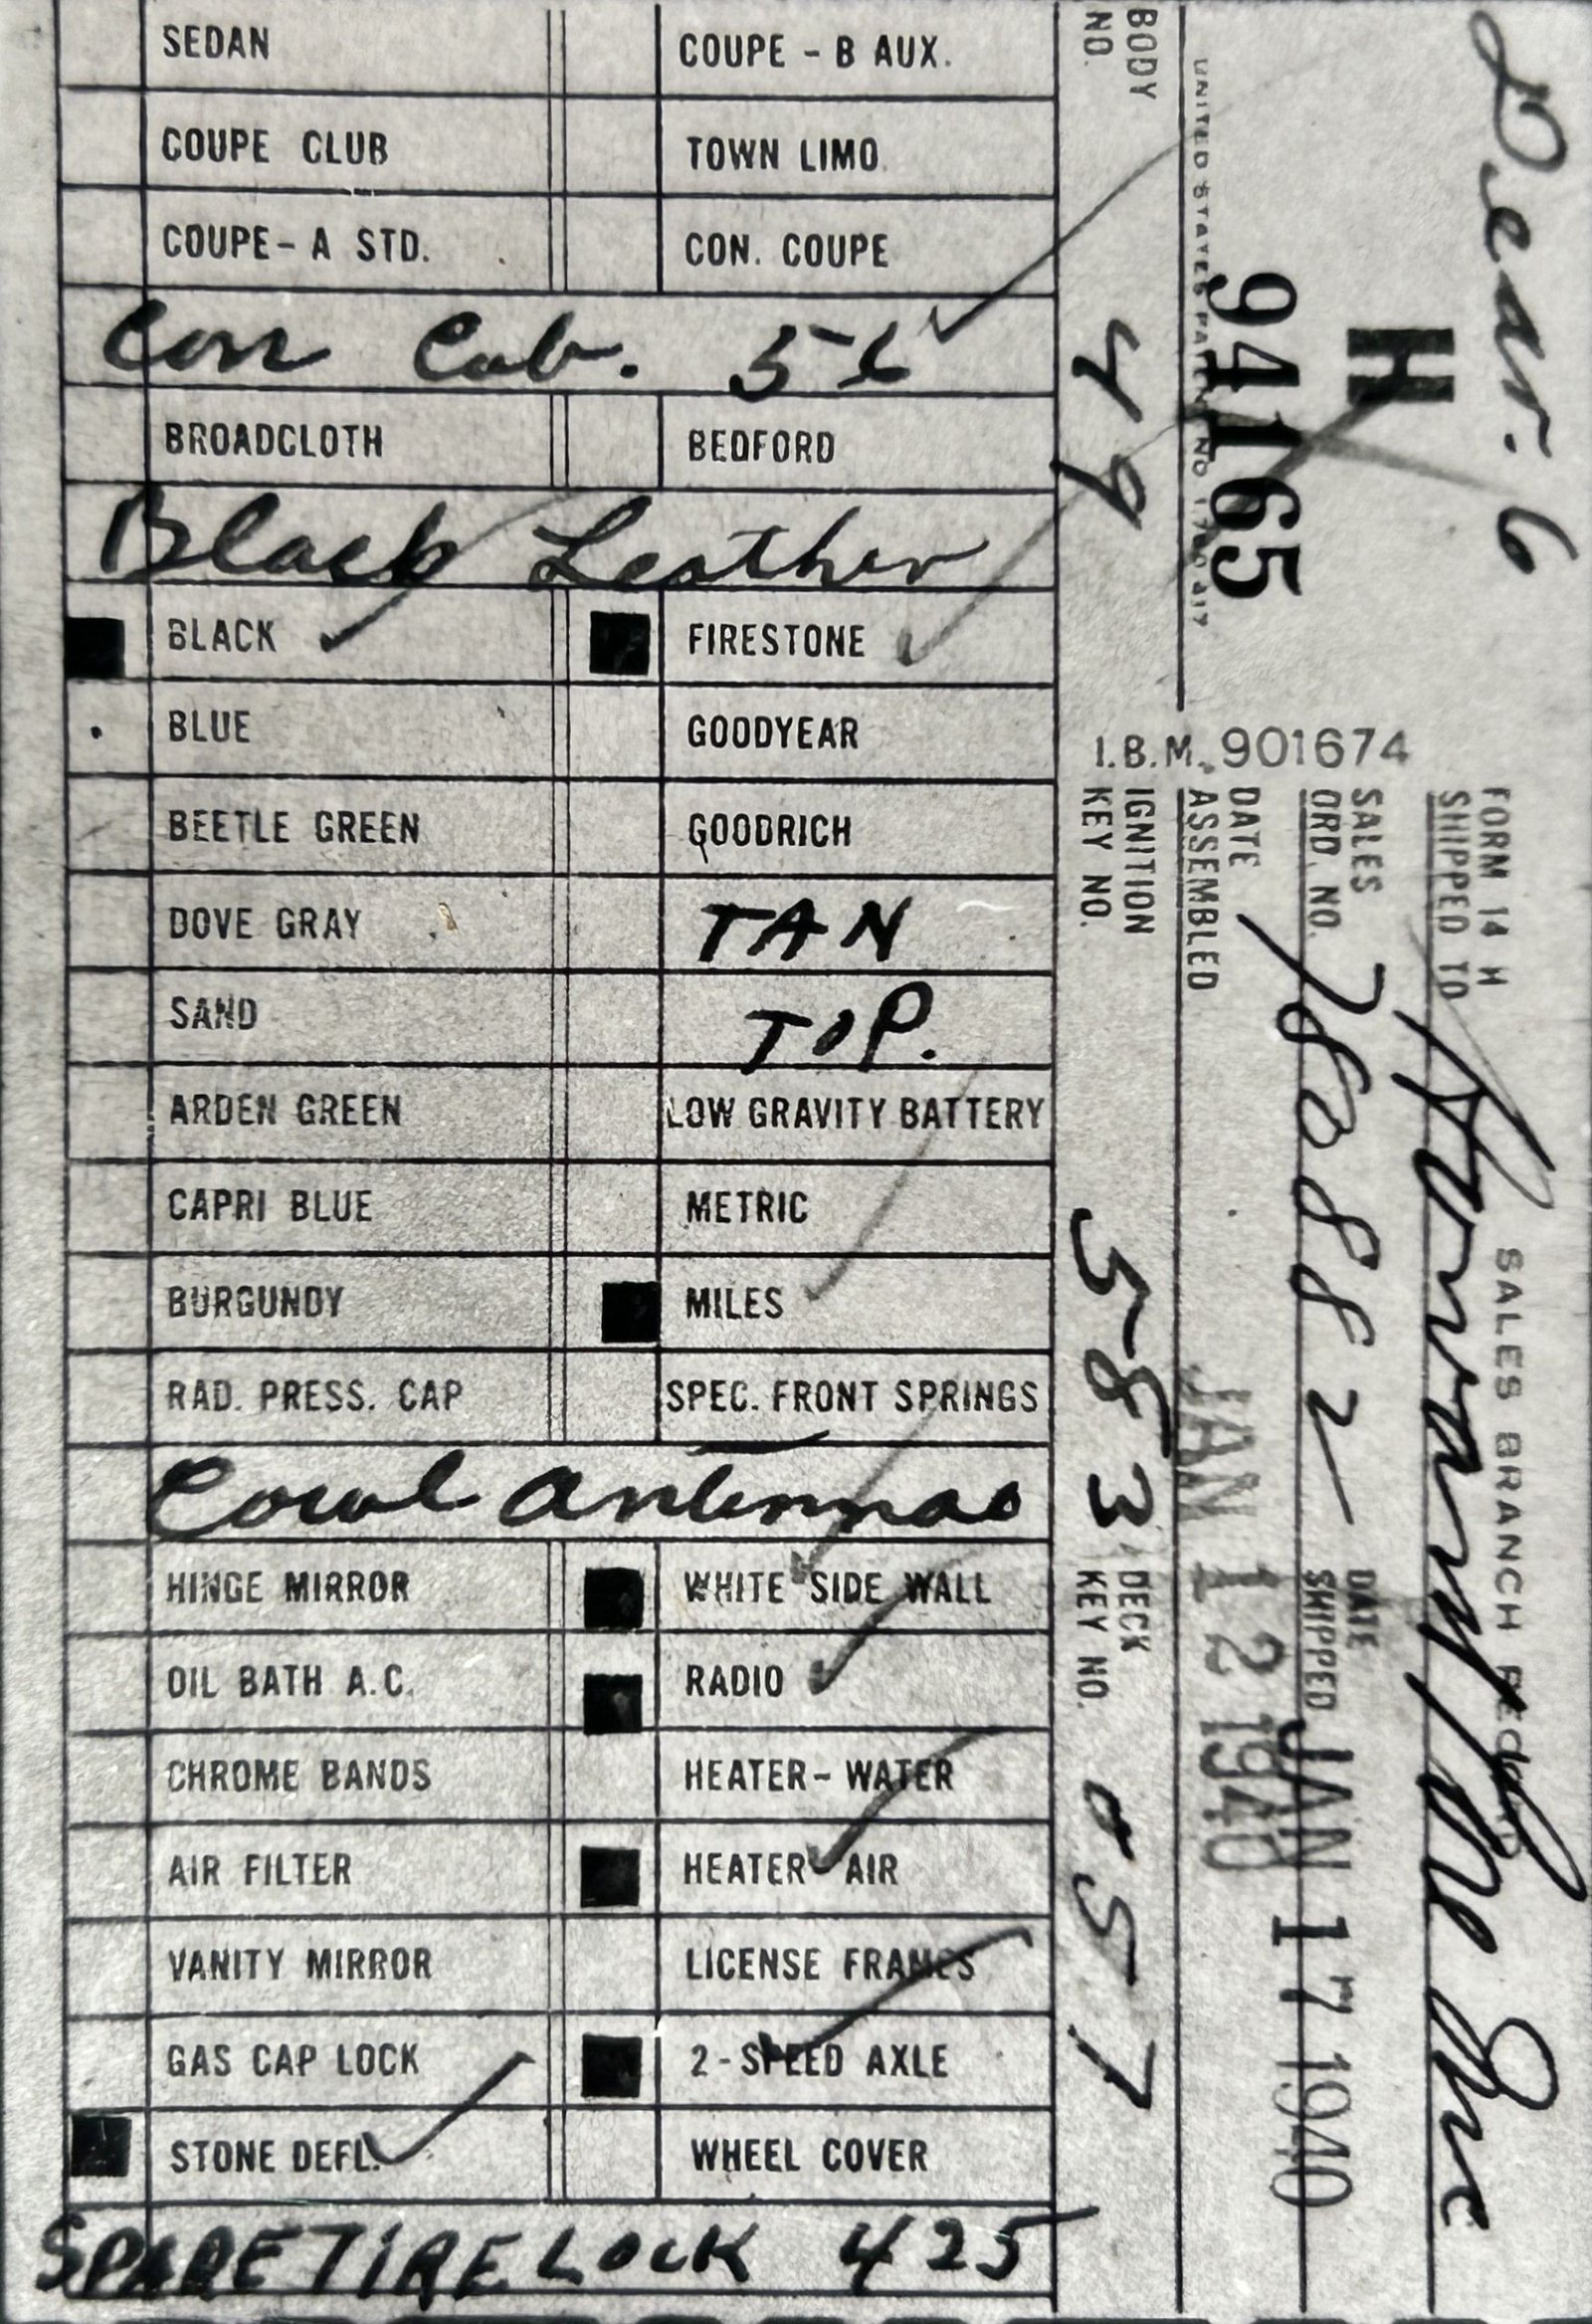 SEDAN
COUPE - B AUX.
COUPE CLUB
TOWN LIMO.
COUPE- A STD.
CON. COUPE
Con Cab. 56
BROADCLOTH
BEDFORD
Black Leather
BLACK
FIRESTONE
BLUE
GOODYEAR
BEETLE GREEN
GOODRICH
DOVE GRAY
TAN
SAND
TOP.
ARDEN GREEN
LOW GRAVITY BATTERY
CAPRI BLUE
METRIC
BURGUNDY
MILES
RAD. PRESS. CAP
SPEC. FRONT SPRINGS
Cowl Antennae
HINGE MIRROR
WHITE SIDE WALL
OIL BATH A.C.
RADIO
CHROME BANDS
HEATER- WATER
AIR FILTER
HEATER AIR
VANITY MIRROR
LICENSE FRAMES
GAS CAP LOCK
2-SPEED AXLE
STONE DEFL.
WHEEL COVER
SPARE TIRE LOCK 425
I.B.M. 901674
Dear. 6
H
94165
UNITED STATES PATENT NO 1780417
BODY NO. 49
FORM 14 H
SALES BRANCH RECORD
SHIPPED TO Inc
SALES ORD. NO. 78088 2
DATE SHIPPED JAN 17 1940
DATE ASSEMBLED JAN 12 1940
IGNITION KEY NO. 583
DECK KEY NO. 057